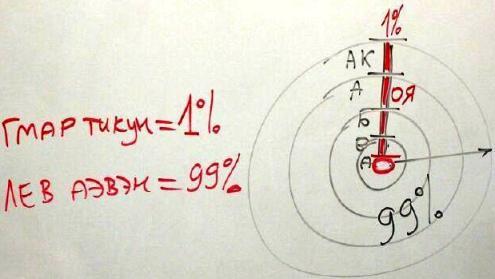 1%
АК
А ОЯ
Б
В
А
ГМАР ТИКУН = 1%
ЛЕВ АЭВЭН = 99%
99%